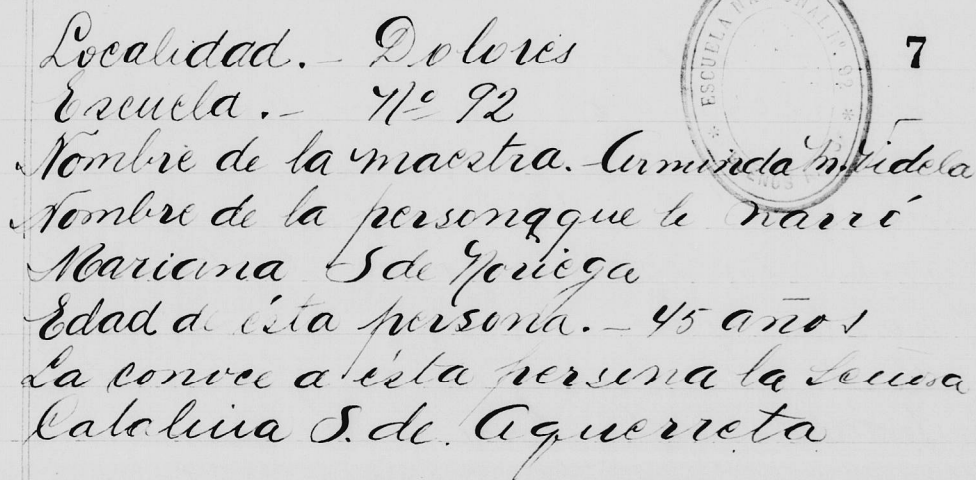 Localidad. - Dolores
7
Escuela. - Nº 92
Nombre de la maestra. - Arminda M. Videla
Nombre de la persona que le narró
Mariana S de Noriega
Edad de ésta persona. - 45 años
La conoce a ésta persona la Señora
Catalina S. de Aguerreta
* ESCUELA NACIONAL Nº 92 *